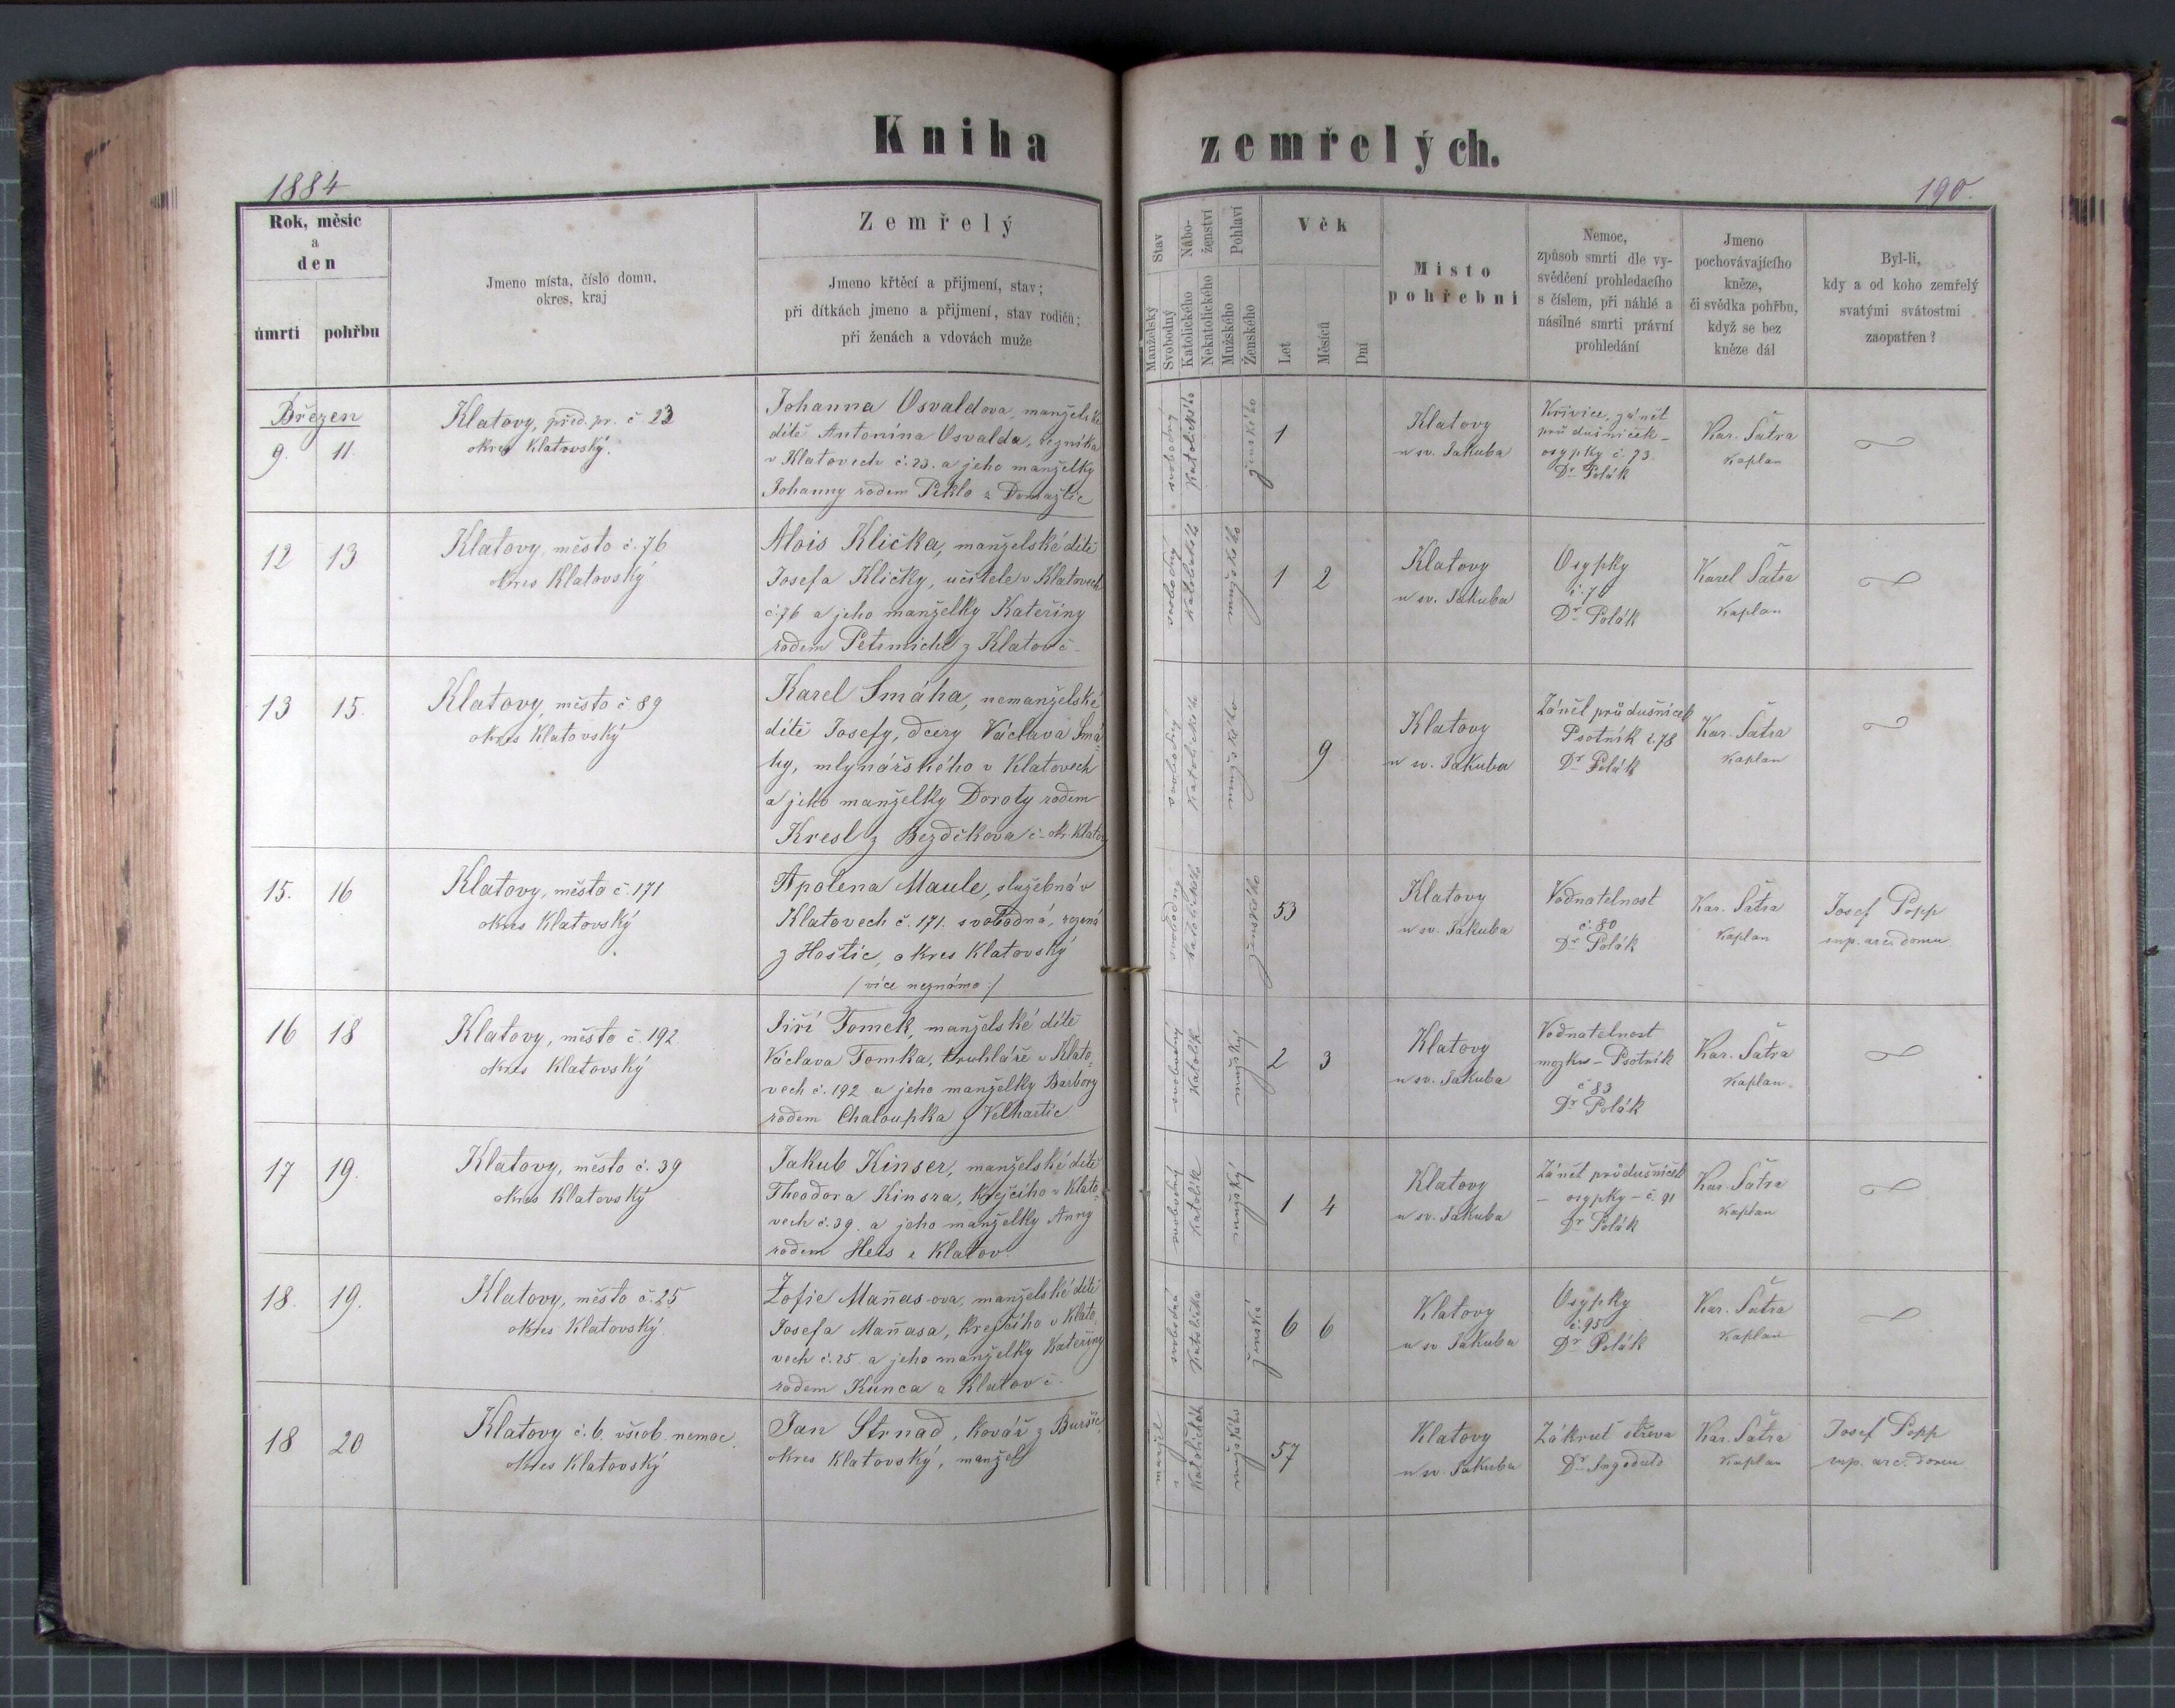 Kniha zemřelých.
1884
190.
Rok, měsíc
a
den
úmrtí
pohřbu
Jmeno místa, číslo domu,
okres, kraj
Zemřelý
Jmeno křtěcí a přijmení, stav;
při dítkách jmeno a přijmení, stav rodičů;
při ženách a vdovách muže
Stav
Manželský
Svobodný
Nábo-
ženství
Katolického
Nekatolického
Pohlaví
Mužského
Ženského
Věk
Let
Měsíců
Dní
Místo
pohřební
Nemoc,
způsob smrti dle vy-
svědčení prohledacího
s číslem, při náhlé a
násilné smrti právní
prohledání
Jmeno
pochovávajícího
kněze,
či svědka pohřbu,
když se bez
kněze dál
Byl-li,
kdy a od koho zemřelý
svatými svátostmi
zaopatřen?
Březen
9. 11.
Klatovy, před. pr. č 23
okres Klatovský.
Johanna Osvaldova, manželské
dítě Antonína Osvalda, řezníka
v Klatovech č. 23. a jeho manželky
Johanny rodem Peklo z Domažlic
svobodný
Katolického
ženského
1
Klatovy
u sv. Jakuba
Křivice, zánět
průdušniček -
osypky č. 73.
Dr Polák
Kar. Šatra
Kaplan
12 13
Klatovy, město č. 76
okres Klatovský
Alois Klička, manželské dítě
Josefa Kličky, učitele v Klatovech
č. 76 a jeho manželky Kateřiny
rodem Petrmichl z Klatov č -
svobodný
mužského
1 2
Klatovy
u sv. Jakuba
Osypky
Dr Polák
Karel Šatra
Kaplan
13 15.
Klatovy, město č. 89
okres Klatovský
Karel Smáha, nemanželské
dítě Josefy, dcery Václava Smá-
hy, mlynářského v Klatovech
a jeho manželky Doroty rodem
Kresl z Bezděkova č - okr. Klatov
svobodný
Katolického
mužského
9
Klatovy
u sv. Jakuba
Zánět průdušniček
Psotník č. 78
Dr Polák
Kar. Šatra
Kaplan
15. 16
Klatovy, město č. 171
okres Klatovský
Apolena Maule, služebná v
Klatovech č. 171. svobodná, rozená
z Hoštic, okres Klatovský
/ více neznámo :/
svobodný
Katolického
ženského
53
Klatovy
u sv. Jakuba
Vodnatelnost
č. 80
Dr Polák
Kar. Šatra
Kaplan
Josef Popp
sup. arci domu
16 18
Klatovy, město č. 192
okres Klatovský
Jiří Tomek, manželské dítě
Václava Tomka, truhláře v Klato-
vech č. 192 a jeho manželky Barbory
rodem Chaloupka z Velhartic
svobodný
Katolík
mužský
2 3
Klatovy
u sv. Jakuba
Vodnatelnost
mozku - Psotník
č 83
Dr Polák
Kar. Šatra
Kaplan.
17 19.
Klatovy, město č. 39
okres Klatovský
Jakub Kinser, manželské dítě
Theodora Kinsra, krejčího v Klato-
vech č. 39. a jeho manželky Anny
rodem z Klatov
svobodný
Katolík
mužský
1 4
Klatovy
u sv. Jakuba
Zánět průdušniček
- osypky - č. 91
Dr Polák
Kar. Šatra
Kaplan
18. 19.
Klatovy, město č. 25
okres Klatovský.
Žofie Maňas-ova, manželské dítě
Josefa Maňasa, krejčího v Klato-
vech č. 25. a jeho manželky Kateřiny
rodem Kunca z Klatov č.
svobodná
Katolička
ženská
6 6
Klatovy
u sv Jakuba
Osypky
č. 95
Dr Polák
Kar. Šatra
Kaplan
18 20
Klatovy č. 6. všeob. nemoc.
okres Klatovský
Jan Strnad, kovář z
okres Klatovský, manžel
manžel
mužského
57
Klatovy
u sv. Jakuba
Zákrut střeva
Dr
Kar. Šatra
Kaplan
Josef Popp
sup. arc. domu